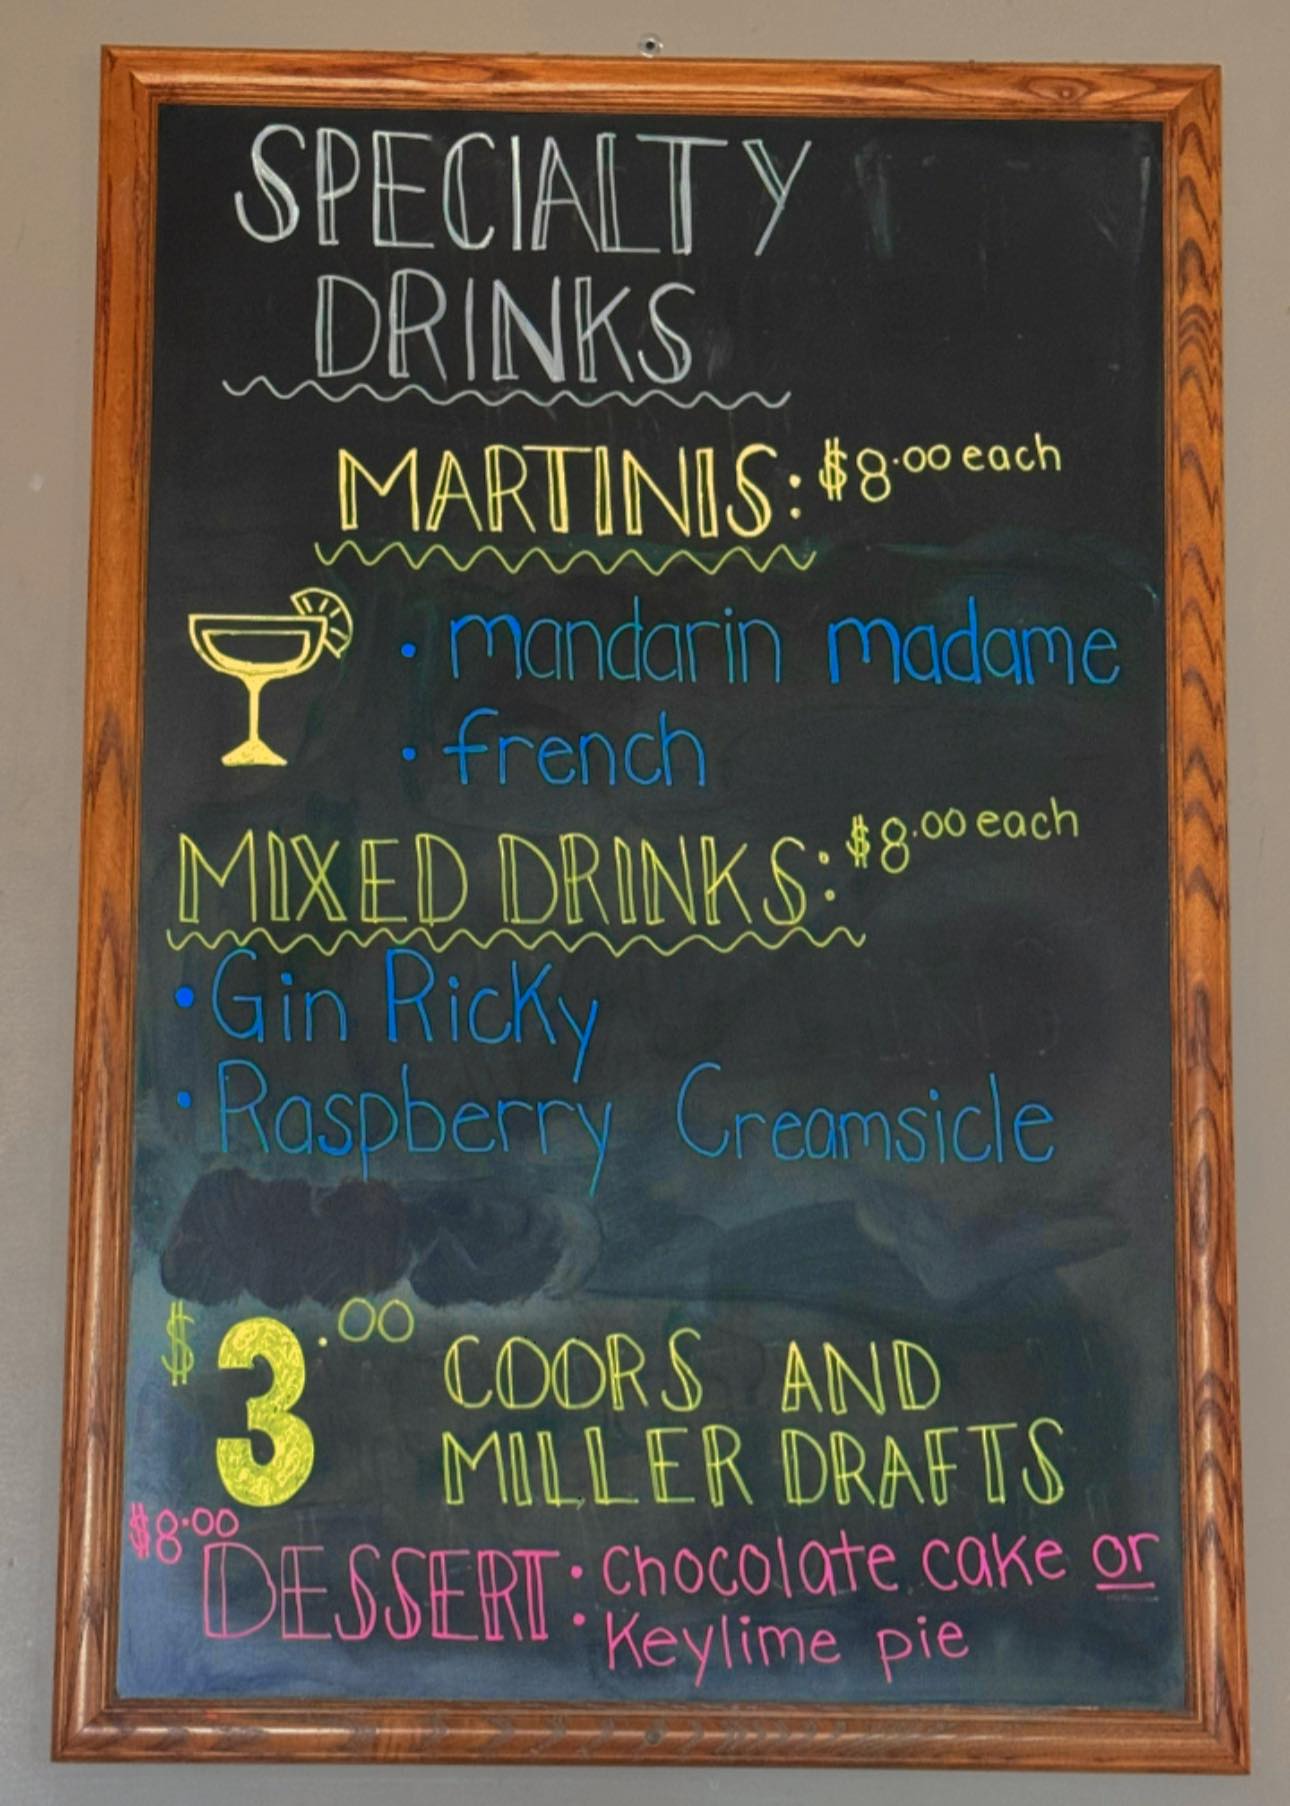 SPECIALTY
DRINKS
MARTINIS: $8.00 each
• mandarin madame
• french
MIXED DRINKS: $8.00 each
• Gin Ricky
• Raspberry Creamsicle
$3.00 COORS AND
MILLER DRAFTS
$8.00 DESSERT: chocolate cake or
Keylime pie